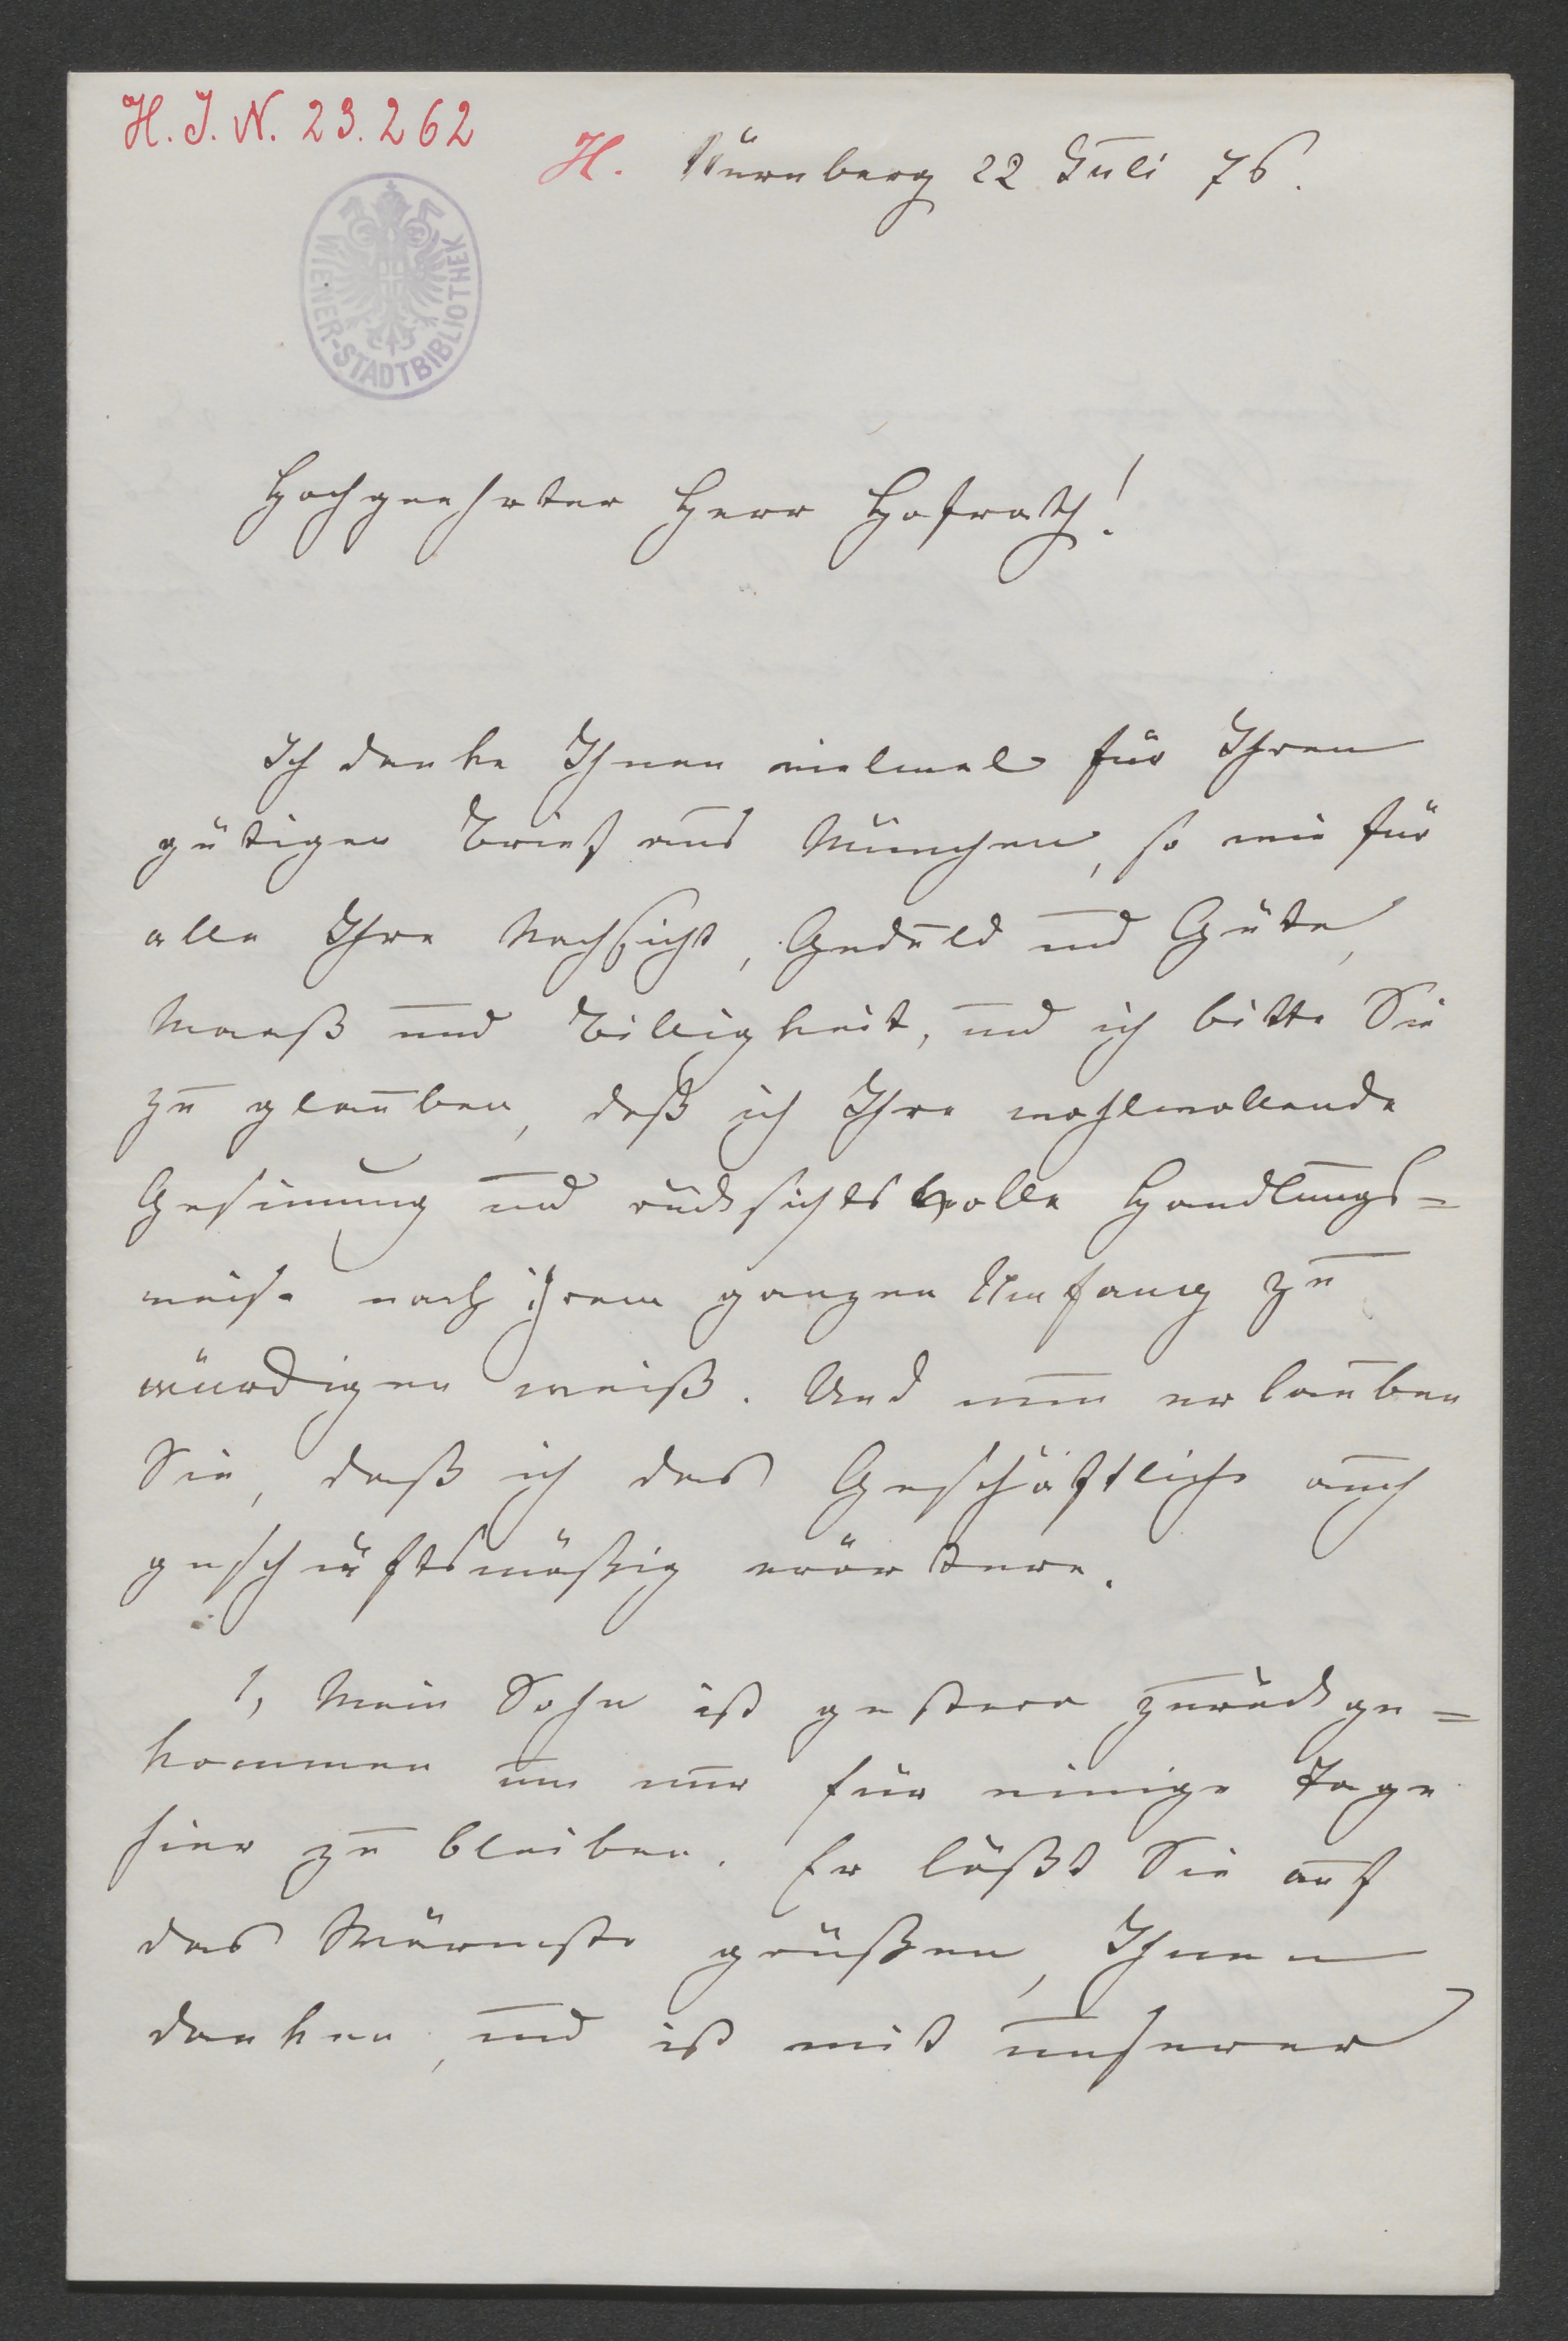 H. J. N. 23.262
H. Nürnberg 22 Juli 76.
WIENER-STADTBIBLIOTHEK
Hochgeehrter Herr Hofrath!
Ich danke Ihnen vielmal für Ihren
gütigen Brief aus München, so wie für
alle Ihre Nachsicht, Geduld und Güte,
Maaß und Billigkeit, und ich bitte Sie
zu glauben, daß ich Ihre wohlwollende
Gesinnung und rücksichtsvolle Handlungs=
weise nach ihrem ganzen Umfang zu
würdigen weiß. Und nun erlauben
Sie, daß ich das Geschäftliche auch
geschäftsmäßig erörtere.
1, Mein Sohn ist gestern zurückge=
kommen um nur für einige Tage
hier zu bleiben. Er läßt Sie auf
das Wärmste grüßen, Ihnen
danken, und ist mit unserer